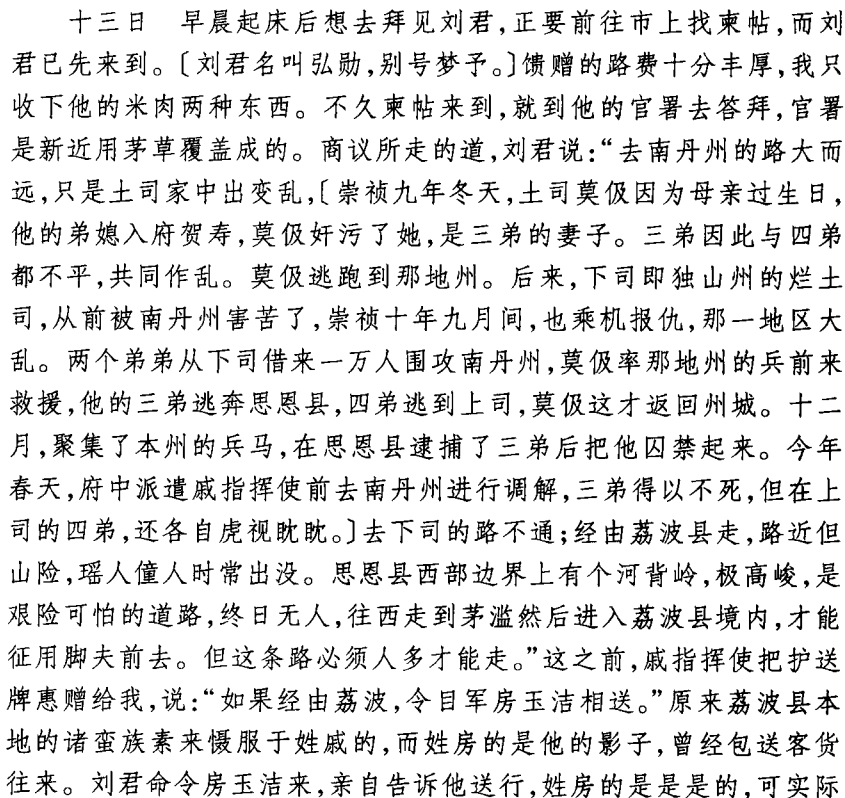 十三日　早晨起床后想去拜见刘君，正要前往市上找柬帖，而刘
君已先来到。〔刘君名叫弘勋，别号梦予。〕馈赠的路费十分丰厚，我只
收下他的米肉两种东西。不久柬帖来到，就到他的官署去答拜，官署
是新近用茅草覆盖成的。商议所走的道，刘君说：“去南丹州的路大而
远，只是土司家中出变乱，〔崇祯九年冬天，土司莫伋因为母亲过生日，
他的弟媳入府贺寿，莫伋奸污了她，是三弟的妻子。三弟因此与四弟
都不平，共同作乱。莫伋逃跑到那地州。后来，下司即独山州的烂土
司，从前被南丹州害苦了，崇祯十年九月间，也乘机报仇，那一地区大
乱。两个弟弟从下司借来一万人围攻南丹州，莫伋率那地州的兵前来
救援，他的三弟逃奔思恩县，四弟逃到上司，莫伋这才返回州城。十二
月，聚集了本州的兵马，在思恩县逮捕了三弟后把他囚禁起来。今年
春天，府中派遣戚指挥使前去南丹州进行调解，三弟得以不死，但在上
司的四弟，还各自虎视眈眈。〕去下司的路不通；经由荔波县走，路近但
山险，瑶人僮人时常出没。思恩县西部边界上有个河背岭，极高峻，是
艰险可怕的道路，终日无人，往西走到茅滥然后进入荔波县境内，才能
征用脚夫前去。但这条路必须人多才能走。”这之前，戚指挥使把护送
牌惠赠给我，说：“如果经由荔波，令目军房玉洁相送。”原来荔波县本
地的诸蛮族素来慑服于姓戚的，而姓房的是他的影子，曾经包送客货
往来。刘君命令房玉洁来，亲自告诉他送行，姓房的是是是的，可实际